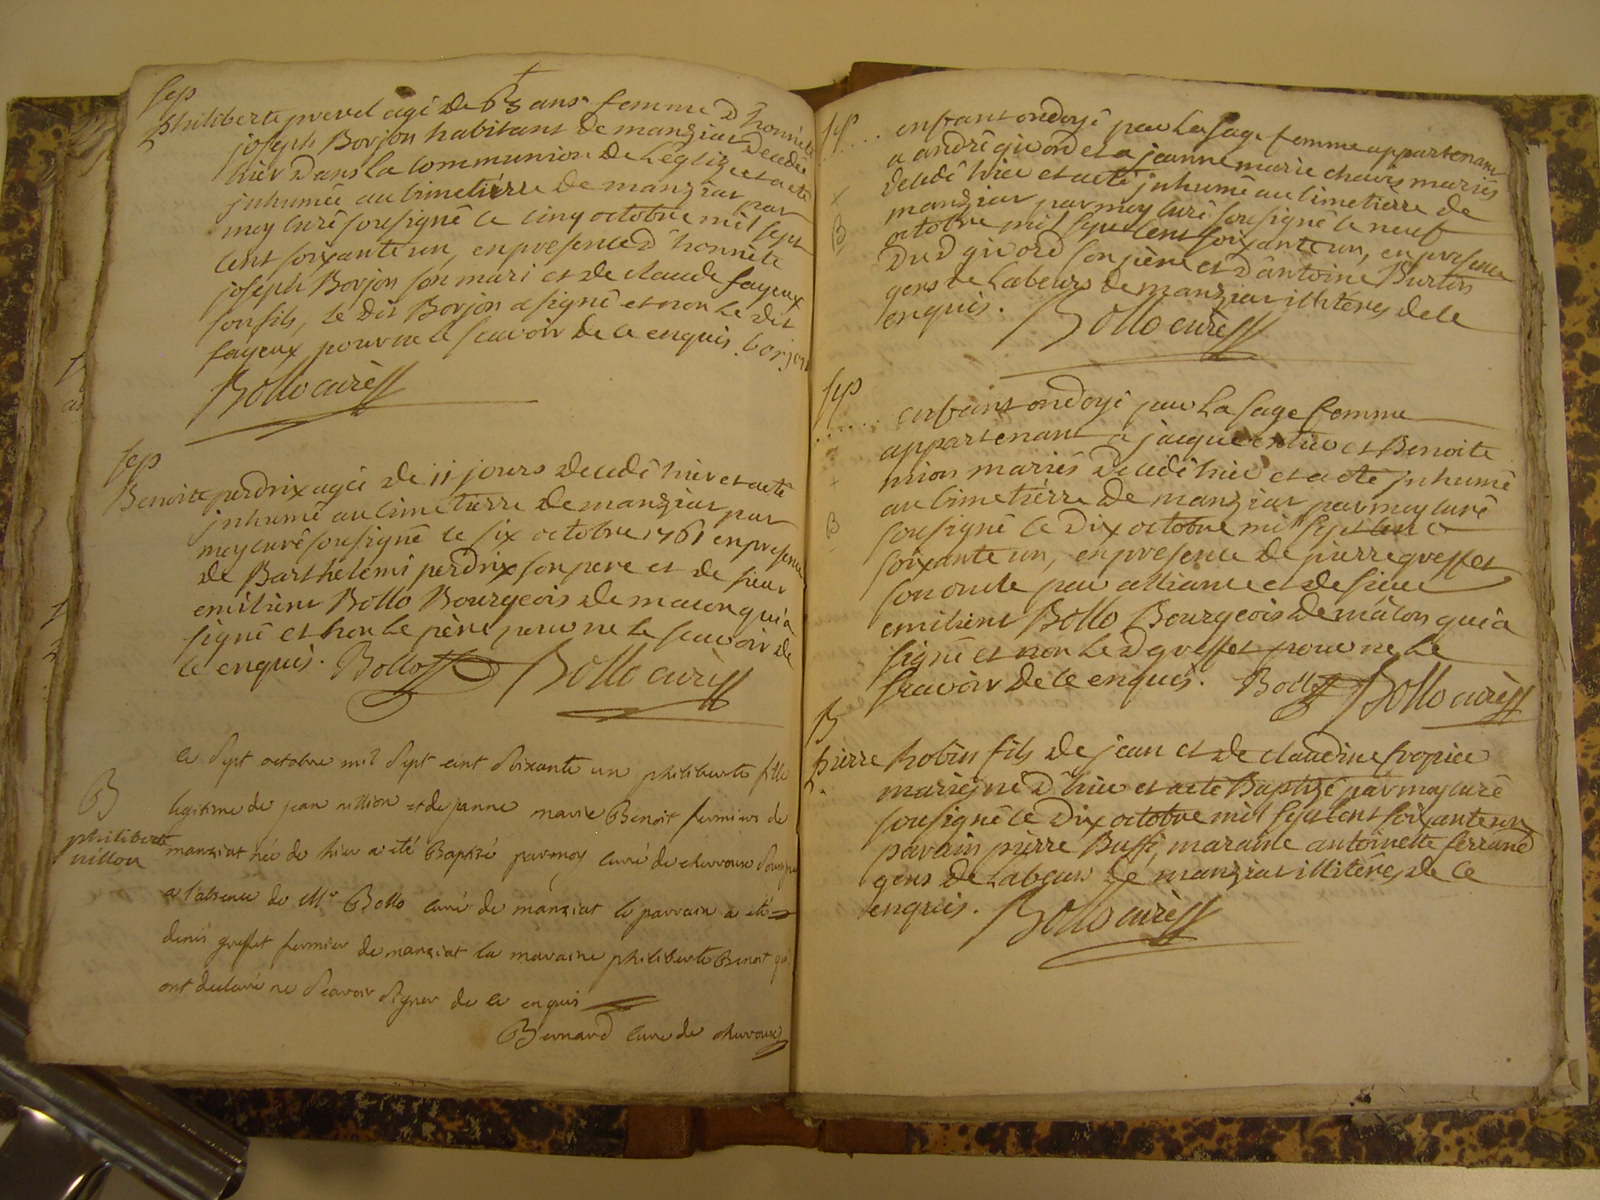 sep
philiberte prevel agé de 65 ans femme d'honnête
joseph Borjon habitant de manziat decedée
hier dans la communion de l'église et a eté
inhumée au cimetière de manziat par
moy curé sousigné le cinq octobre mil sept
cent soixante un, en presence d'honnête
joseph Borjon son mari et de claude fayeux
son fils, le dit Borjon a signé et non le dit
fayeux pour ne le scavoir de ce enquis. borjon
Bollo curé
sep
Benoite perdrix agée de 11 jours decedé hier et a eté
inhumé au cimetierre de manziat par
moy curé sousigné le six octobre 1761 en presence
de Barthelemi perdrix son pere et de sieur
emiliens Bollo Bourgeois de macon qui a
signé et non le père pour ne le scavoir de
ce enquis. Bollo Bollo curé
B
philiberte
nillon
le sept octobre mil sept cent soixante un philiberte fille
legitime de jean nillon et de janne marie Benoit fermiers de
manziat née de hier a été Baptisé par moy curé de chavroux
a l'absence de Mr Bollo curé de manziat le parrain a été
denis greffet fermier de manziat la maraine philiberte Benoit qui
ont declaré ne scavoir signer de ce enquis
Bernard curé de chavroux
sep
enfant ondoyé par la sage femme appartenant
a andré givord et a jeanne marie chavis mariés
decedé hier et a eté inhumé au cimetierre de
manziat par moy curé sousigné le neuf
octobre mil sept cent soixante un, en presence
du d givord son père et d'antoine Burtin
gens de labeurs de manziat illiterés de ce
enquis. Bollo curé
sep
enfant ondoyé par la sage femme
appartenant a jacque et Benoite
mion mariés decedé hier et a eté inhumé
au cimetiérre de manziat par moy curé
sousigné le dix octobre mil sept cent
soixante un, en presence de pierre greffet
son oncle par alliance et de sieur
emiliens Bollo Bourgeois de mâcon qui a
signé et non le d greffet pour ne le
scavoir de ce enquis. Bollo Bollo curé
B
pierre Robin fils de jean et de claudine propice
mariés né d'hier et a eté Baptizé par moy curé
sousigné le dix octobre mil sept cent soixante un
parain pierre Buffi, maraine antoinette ferrand
gens de labeur de manziat illiterés de ce
enquis. Bollo curé